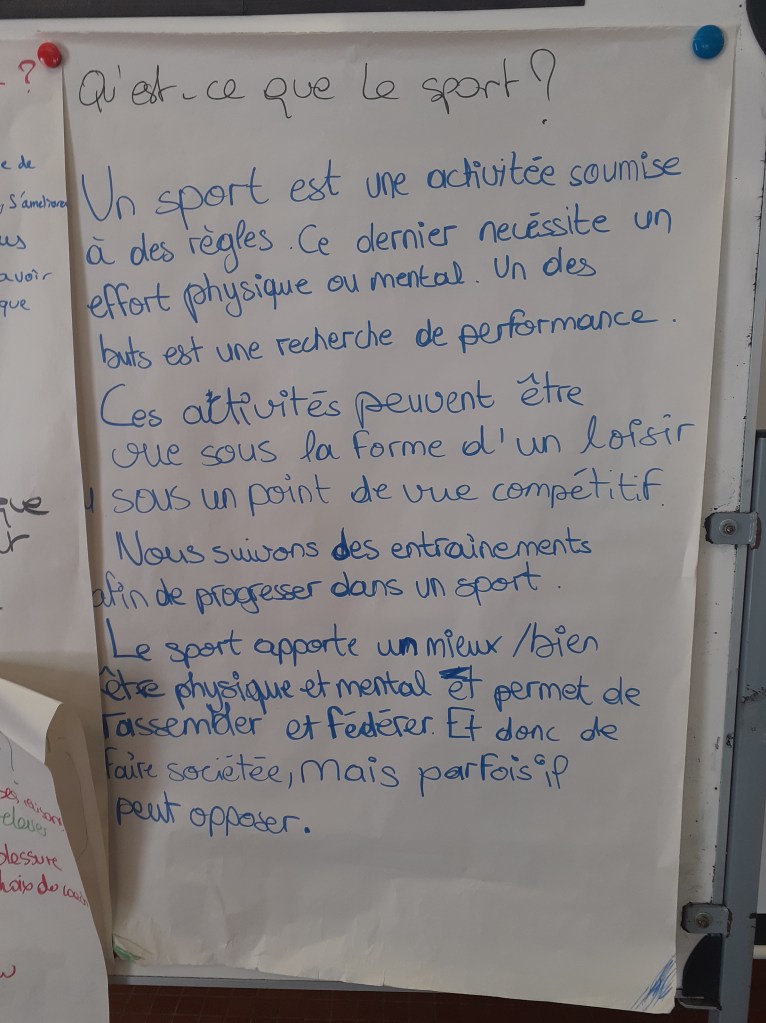 Qu'est-ce que le sport ?
Un sport est une activitée soumise
à des règles. Ce dernier necéssite un
effort physique ou mental. Un des
buts est une recherche de performance.
Ces activités peuvent être
vue sous la forme d'un loisir
sous un point de vue compétitif.
Nous suivons des entrainements
afin de progresser dans un sport.
Le sport apporte un mieux / bien
être physique et mental et permet de
rassembler et fédérer. Et donc de
faire sociétée, mais parfois il
peut opposer.
?
e de
, S'améliorer
us
avoir
que
que
ur
blessure